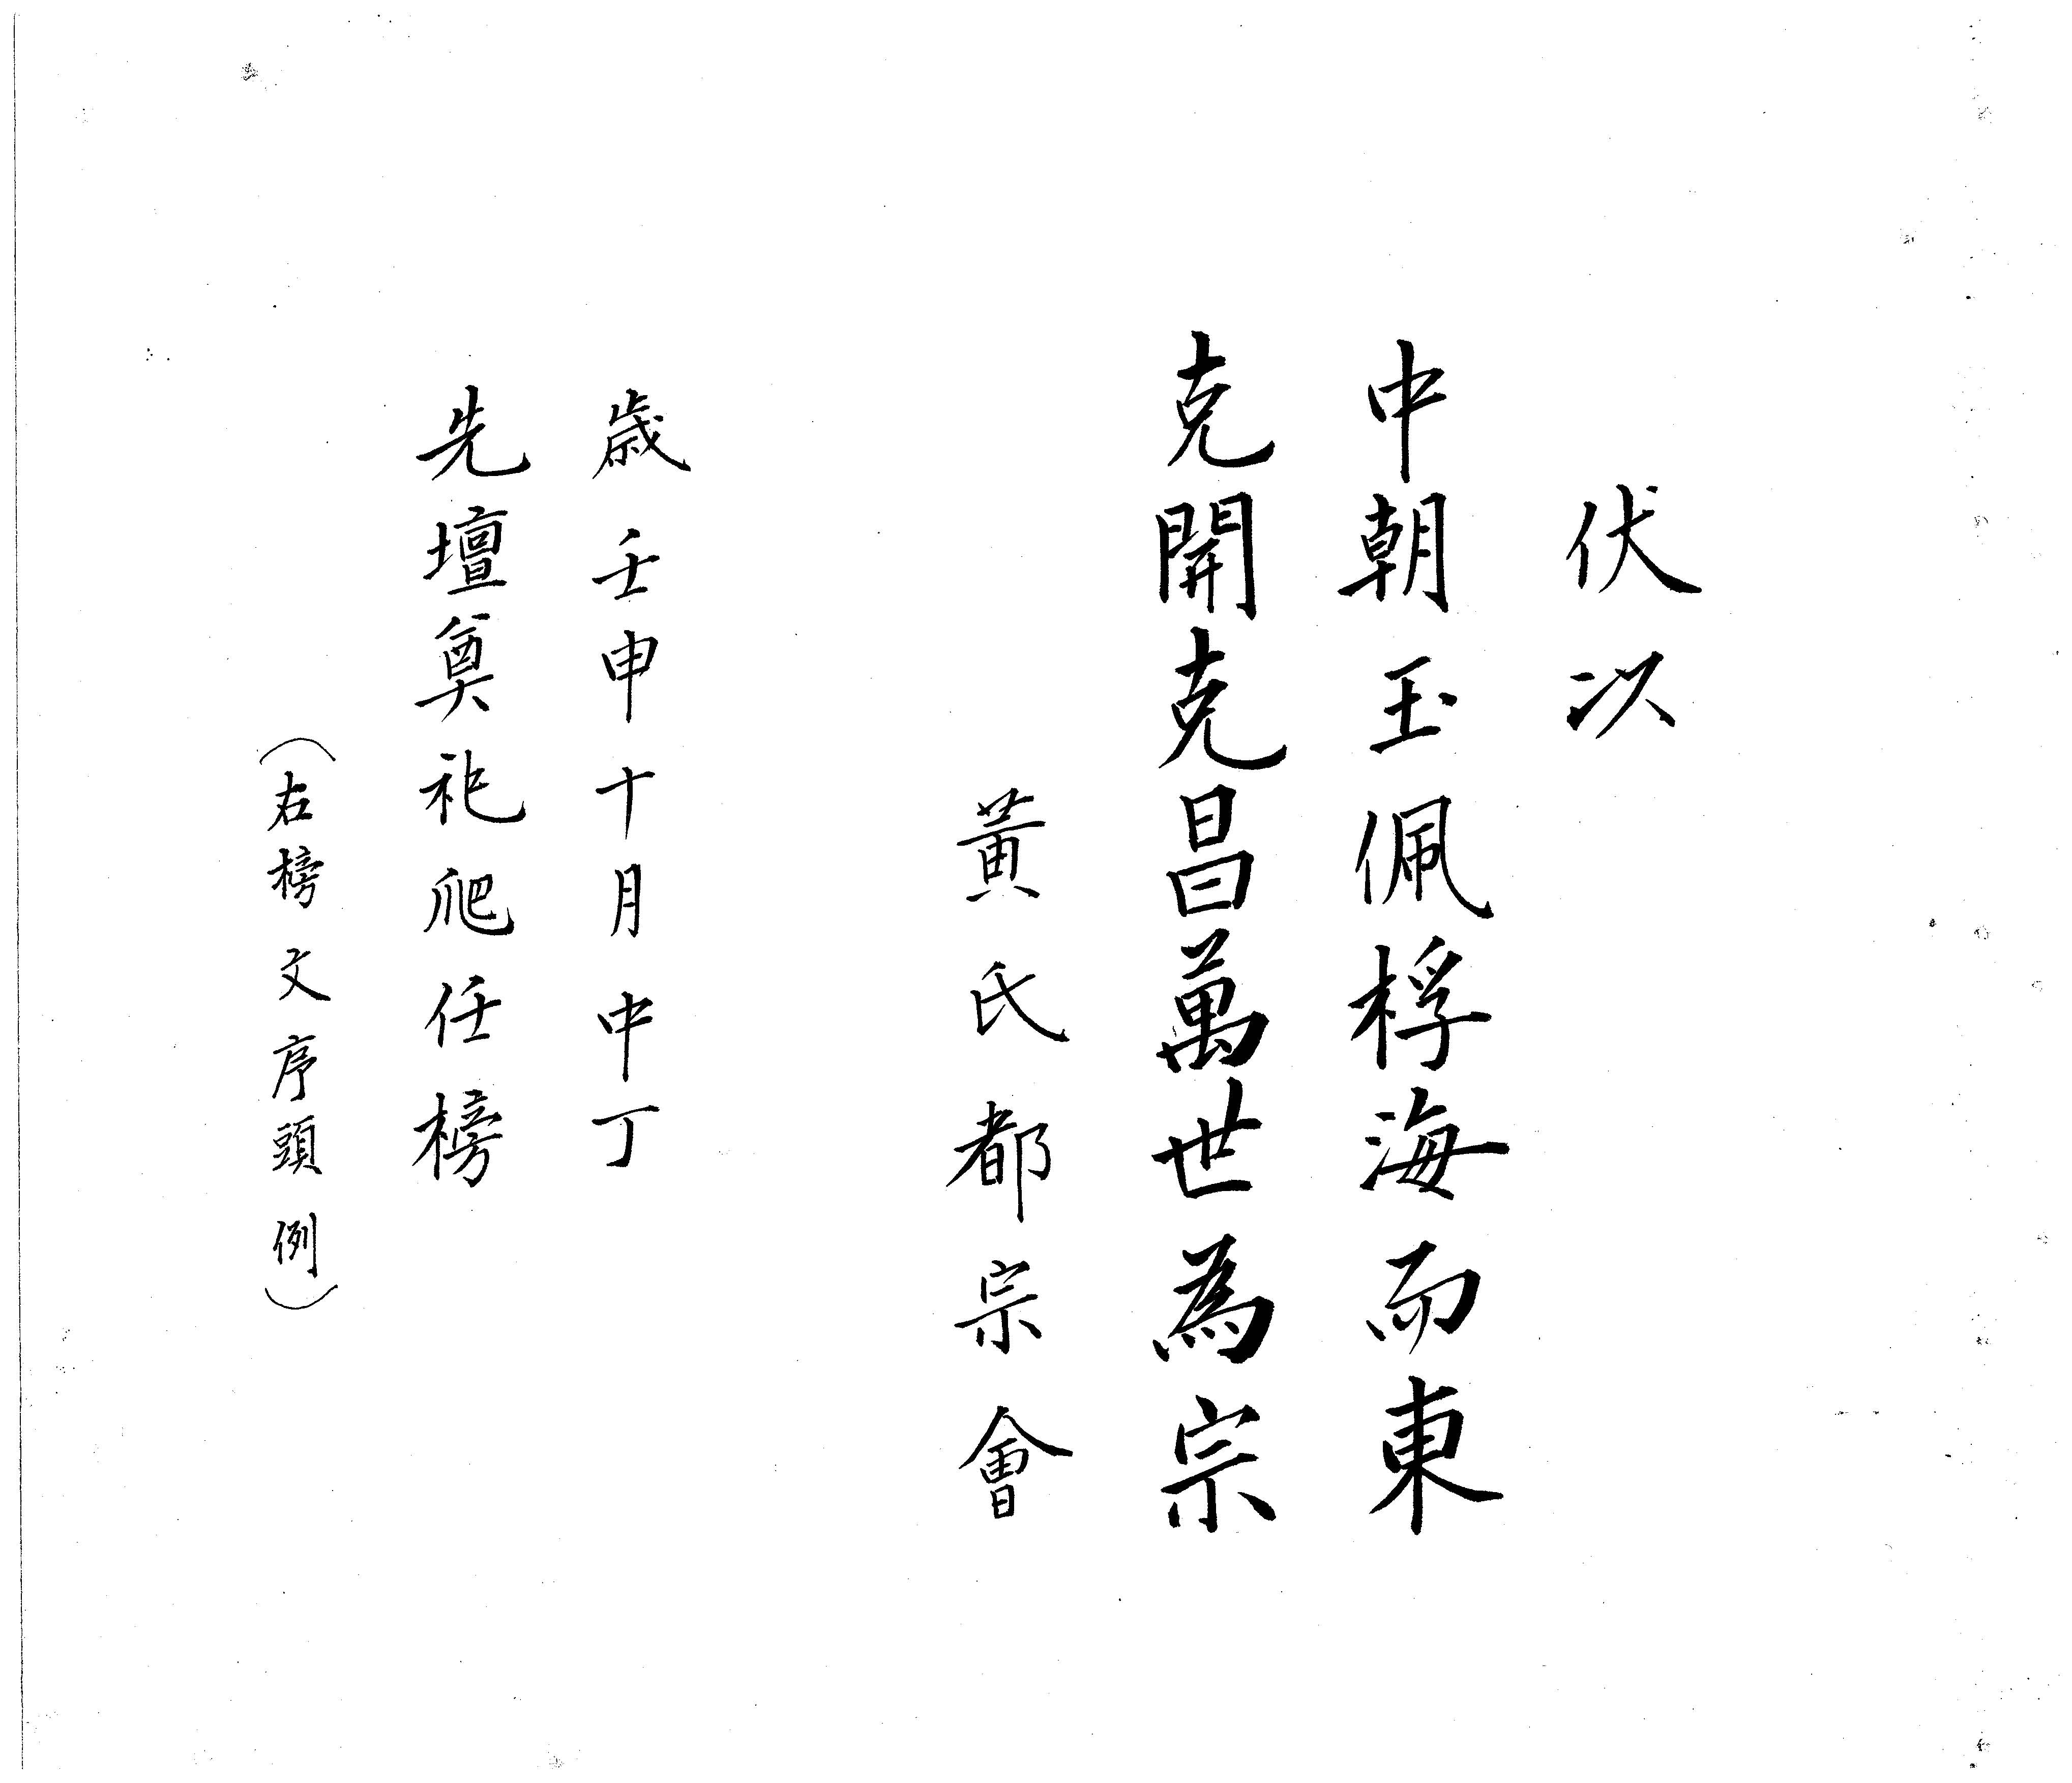 伏以
中朝玉佩桴海而東
克開克昌萬世為宗
黃氏都宗會
歲壬申十月中丁
先壇奠祀爬任榜
(右榜文序頭例)